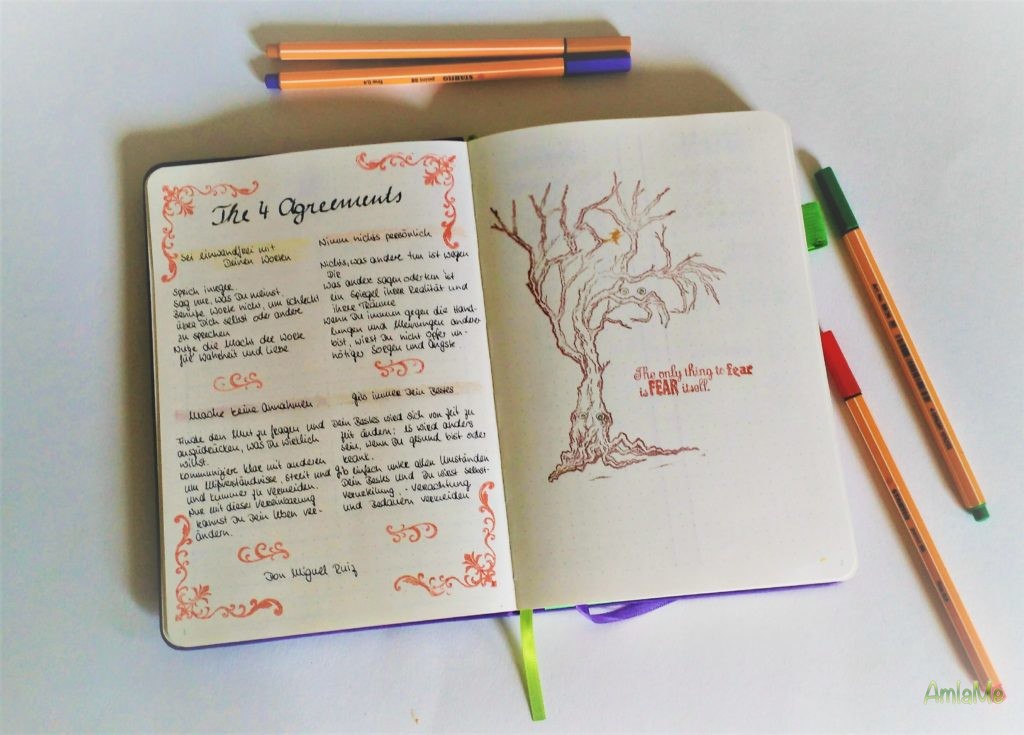 The 4 Agreements
Sei einwandfrei mit
Deinen Worten
Sprich integer.
Sag nur, was Du meinst.
Benutze Worte nicht, um schlecht
über Dich selbst oder andere
zu sprechen
Nutze die Macht der Worte
für Wahrheit und Liebe
Nimm nichts persönlich
Nichts, was andere tun ist wegen
Dir
Was andere sagen oder tun ist
ein Spiegel ihrer Realität und
ihrer Träume
Wenn Du immun gegen die Hand-
lungen und Meinungen anderer
bist, wirst Du nicht Opfer un-
nötiger Sorgen und Ängste.
Mache keine Annahmen
Finde den Mut zu fragen und
auszudrücken, was Du wirklich
willst.
Kommuniziere klar mit anderen
um Missverständnisse, Streit und
und Kummer zu vermeiden.
Nur mit dieser Vereinbarung
kannst Du Dein Leben ver-
ändern.
Gib immer Dein Bestes
Dein Bestes wird sich von Zeit zu
Zeit ändern; es wird anders
sein, wenn Du gesund bist oder
krank.
Gib einfach unter allen Umständen
Dein Bestes und Du wirst Selbst-
verurteilung, -verachtung
und Bedauern vermeiden
Don Miguel Ruiz
The only thing to fear
is FEAR itself.
STABILO point 88 fine 0,4
AmlaMe